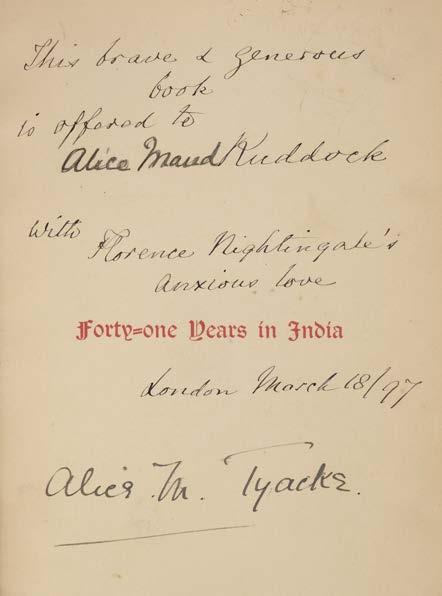 This brave & generous
book
is offered to
Alice Maud Ruddock
with
Florence Nightingale's
anxious love
Forty=one Years in India
London March 18/97
Alice M. Tyacke.